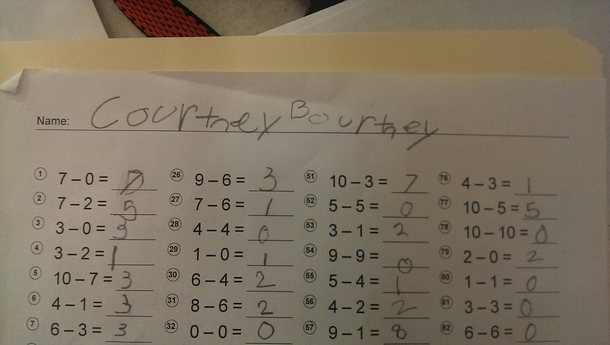 Name: Courtney Bourtney
1 7 – 0 = 26 9 – 6 = 3 51 10 – 3 = 7 76 4 – 3 = 1
2 7 – 2 = 5 27 7 – 6 = 1 52 5 – 5 = 0 77 10 – 5 = 5
3 3 – 0 = 3 28 4 – 4 = 0 53 3 – 1 = 2 78 10 – 10 = 0
4 3 – 2 = 1 29 1 – 0 = 1 54 9 – 9 = 0 79 2 – 0 = 2
5 10 – 7 = 3 30 6 – 4 = 2 55 5 – 4 = 1 80 1 – 1 = 0
6 4 – 1 = 3 31 8 – 6 = 2 56 4 – 2 = 2 81 3 – 3 = 0
7 6 – 3 = 3 32 0 – 0 = 0 57 9 – 1 = 8 82 6 – 6 = 0